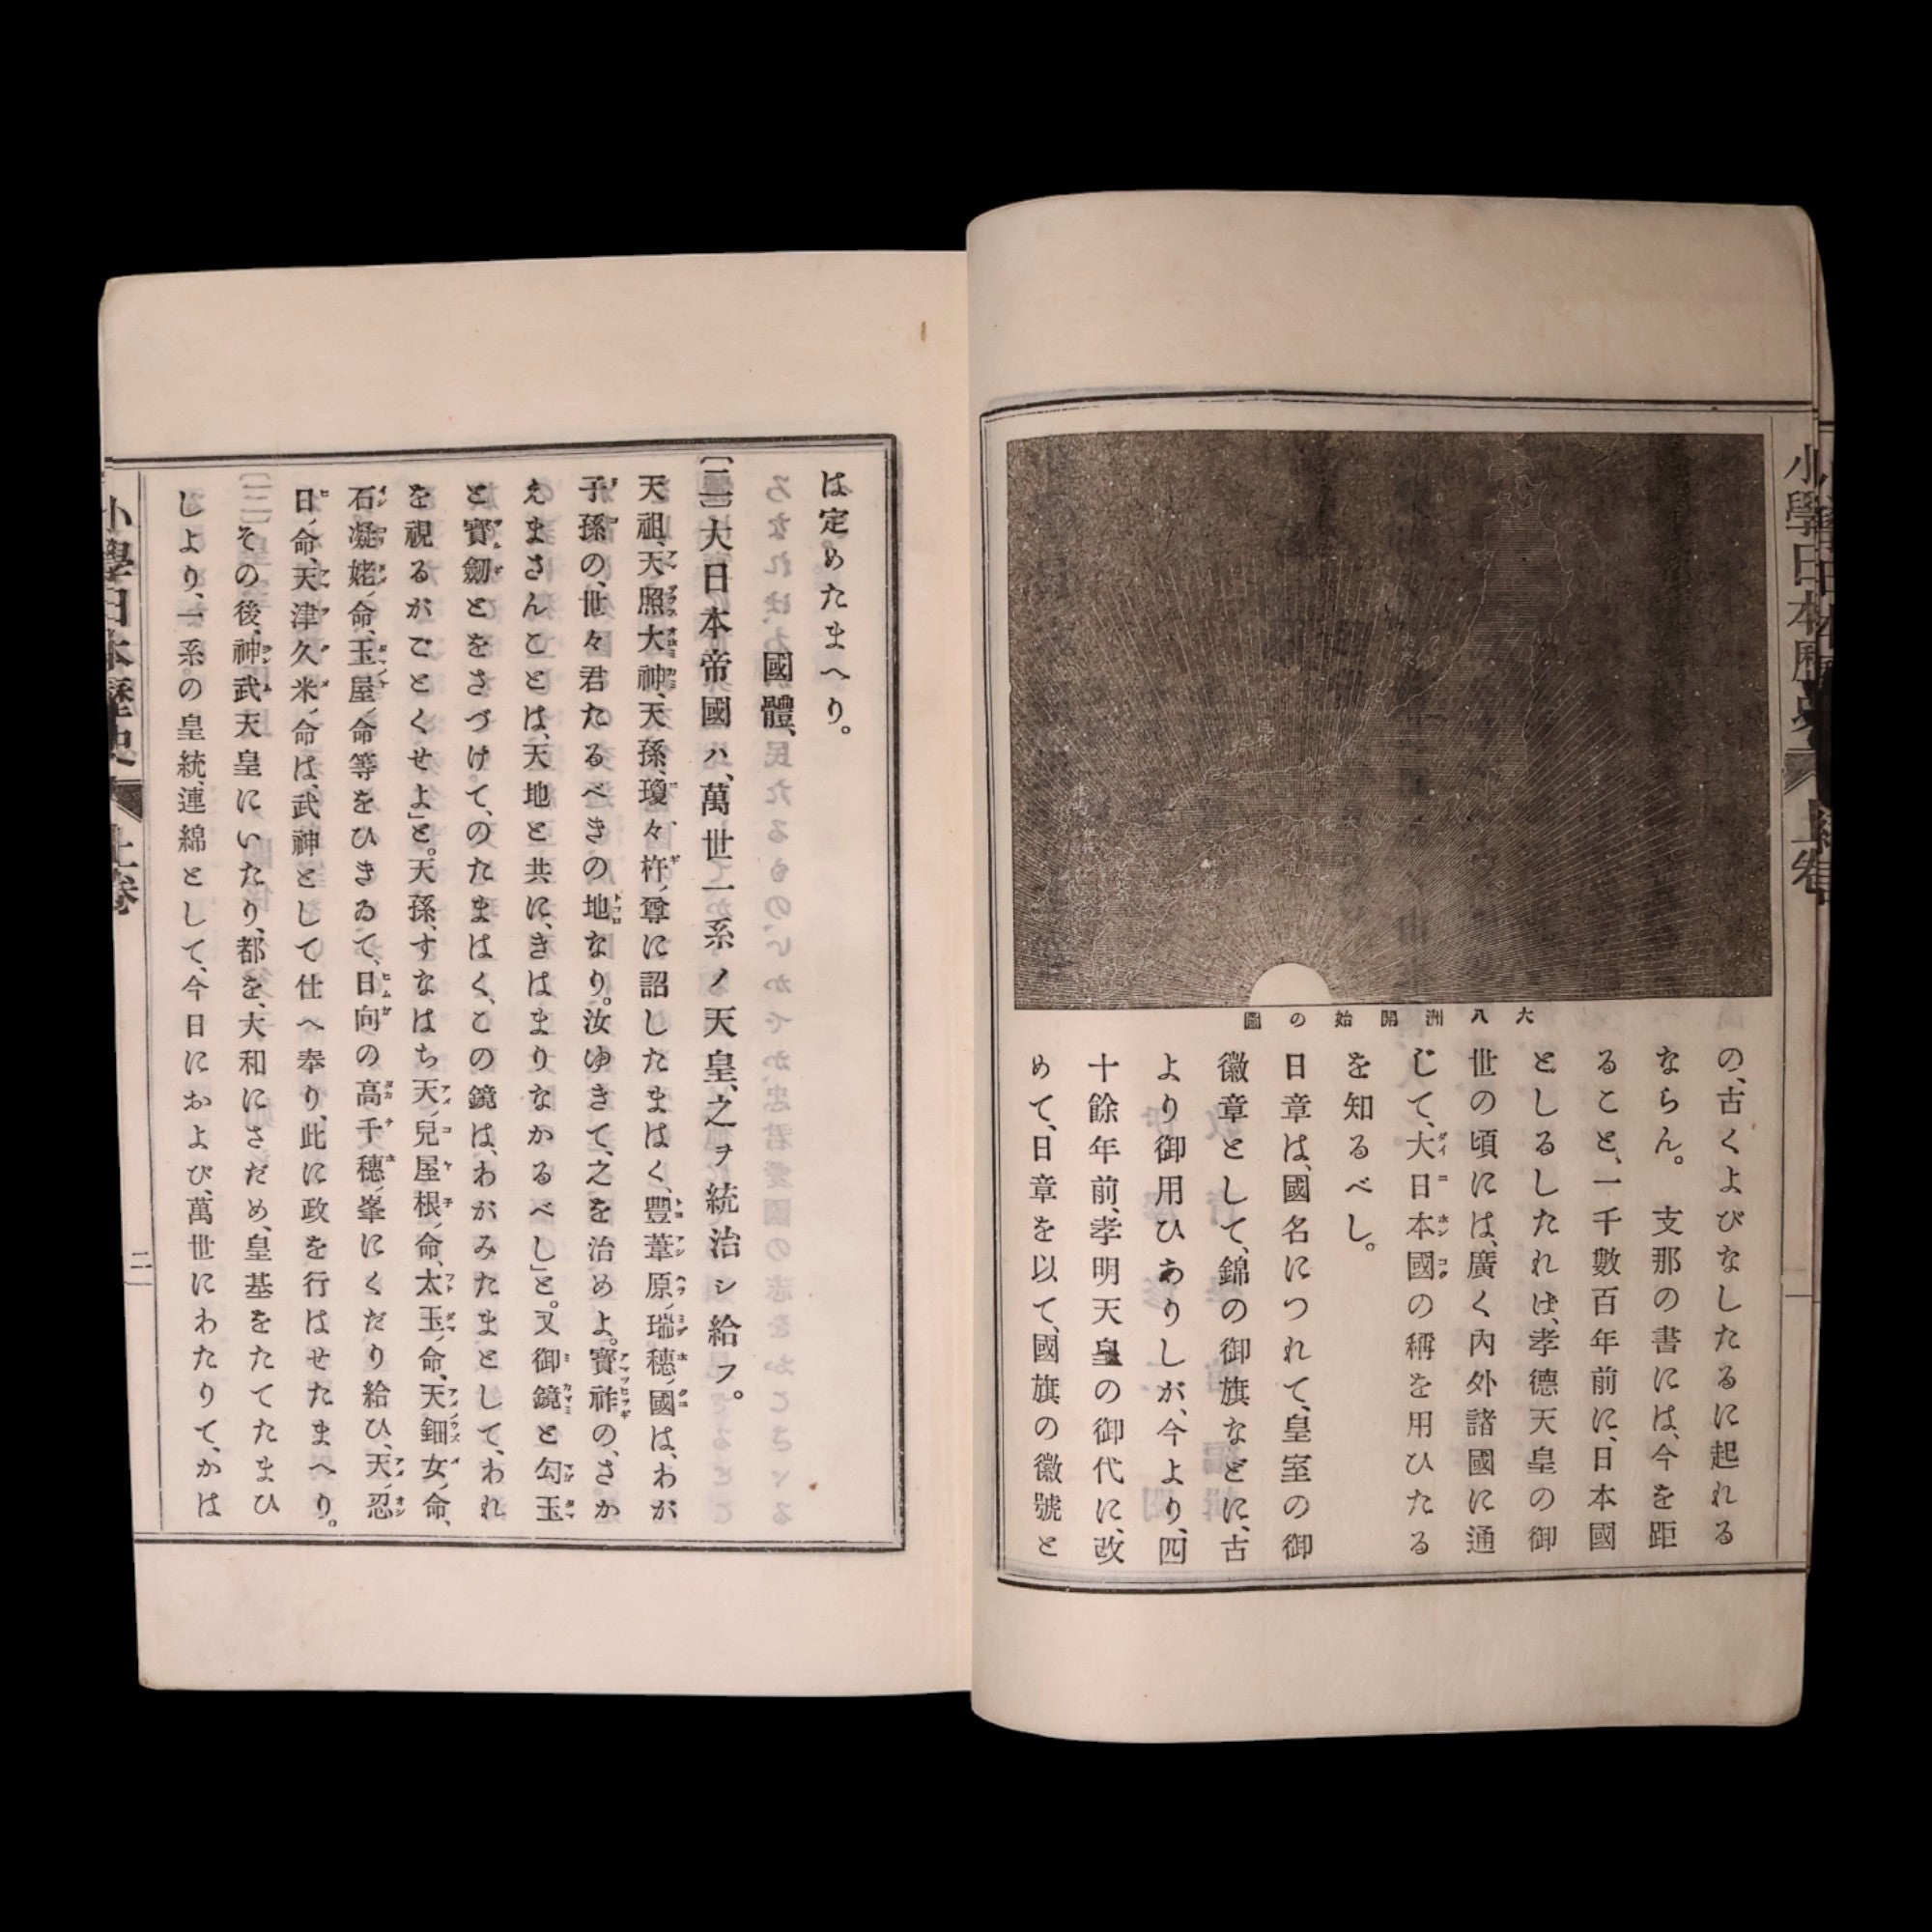 小學日本歷史
大八洲開始の圖
の、古くよびなしたるに起れる
ならん。　支那の書には、今を距
ること、一千數百年前に、日本國
としるしたれば、孝德天皇の御
世の頃には、廣く內外諸國に通
じて、大日本國の稱を用ひたる
を知るべし。
日章は、國名につれて、皇室の御
徽章として、錦の御旗などに、古
より御用ひありしが、今より、四
十餘年前、孝明天皇の御代に、改
めて、日章を以て、國旗の徽號と
は定めたまへり。
國體、
〔二〕大日本帝國ハ、萬世一系ノ天皇、之ヲ統治シ給フ。
天祖、天照大神、天孫、瓊々杵ノ尊に詔したまはく、豐葦原ノ瑞穗ノ國は、わが
子孫の、世々君たるべきの地なり。汝ゆきて、之を治めよ。寶祚の、さか
えまさんことは、天地と共に、きはまりなかるべし」と。又御鏡と勾玉
と寶劒とをさづけて、のたまはく、この鏡は、わがみたまとして、われ
を視るがごとくせよ」と。天孫、すなはち天ノ兒屋根ノ命、太玉ノ命、天ノ鈿女ノ命、
石凝姥ノ命、玉屋ノ命等をひきゐて、日向の高千穗ノ峯にくだり給ひ、天ノ忍
日ノ命、天津久米ノ命は、武神として仕へ奉り、此に政を行はせたまへり。
その後、神武天皇にいたり、都を、大和にさだめ、皇基をたてたまひ
しより、一系の皇統、連綿として、今日におよび、萬世にわたりて、かは
小學日本歷史　上卷
二